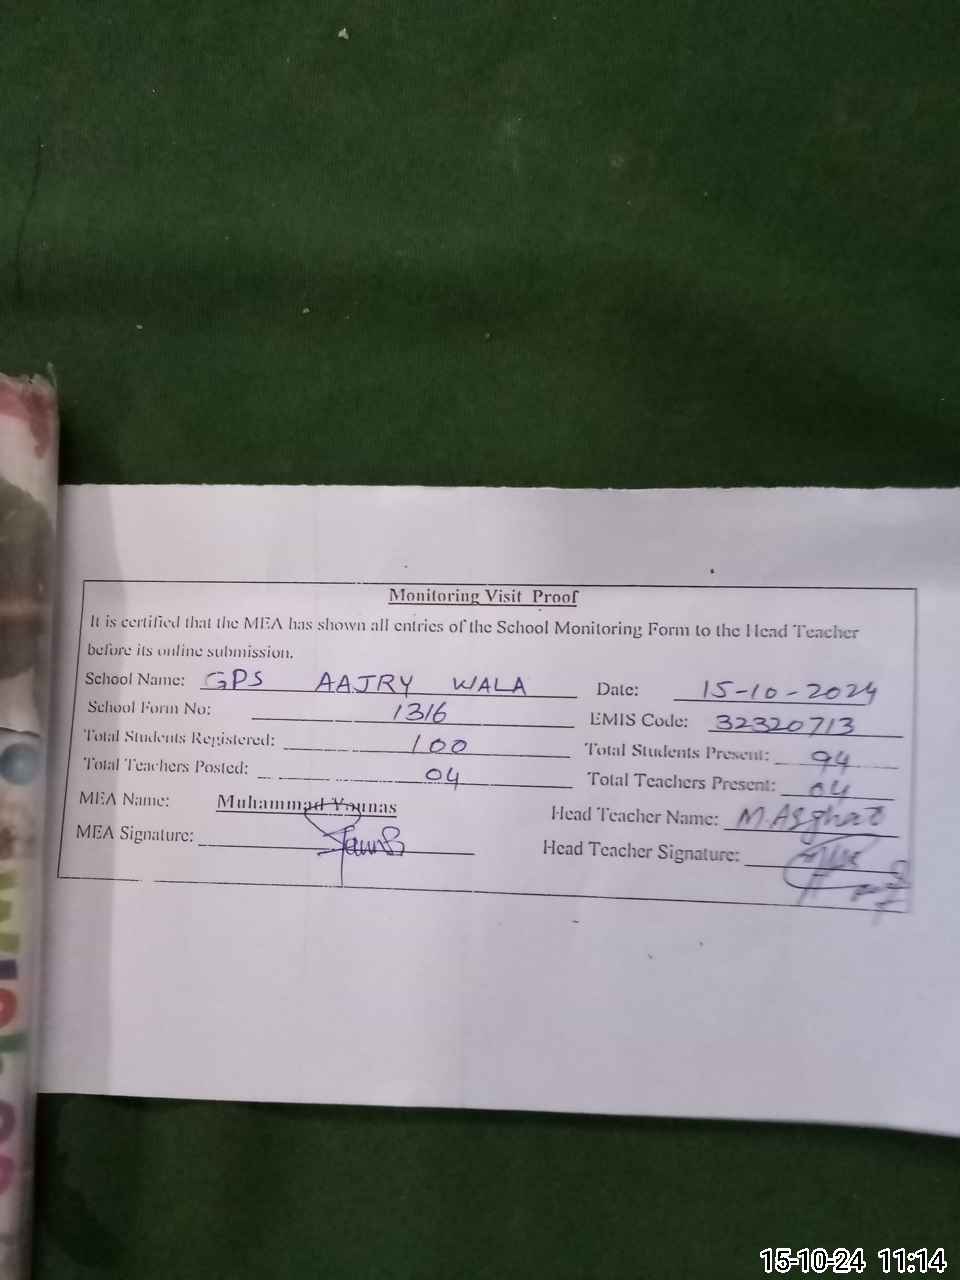 Monitoring Visit Proof
It is certified that the MEA has shown all entries of the School Monitoring Form to the Head Teacher
before its online submission.
School Name: GPS AAJRY WALA Date: 15-10-2024
School Form No: 1316 EMIS Code: 32320713
Total Students Registered: 100 Total Students Present: 94
Total Teachers Posted: 04 Total Teachers Present: 04
MEA Name: Muhammad Younas Head Teacher Name: M. Asghar
MEA Signature: Head Teacher Signature:
15-10-24 11:14